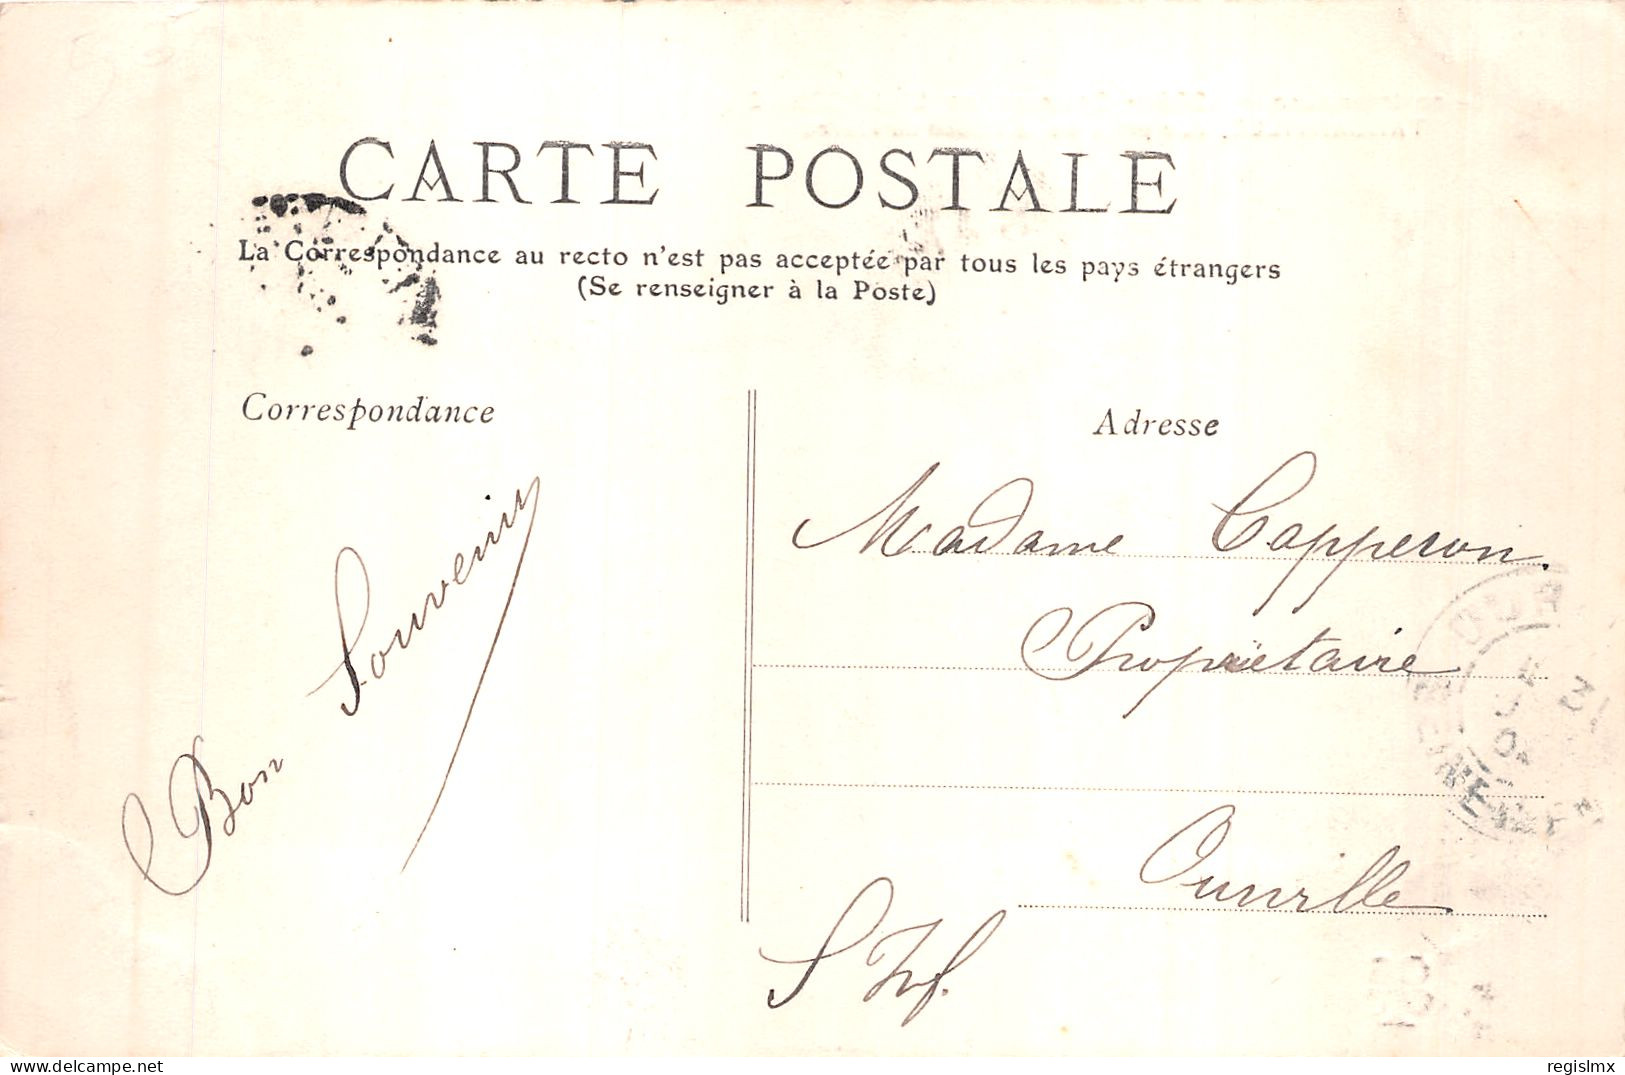 CARTE POSTALE
La Correspondance au recto n'est pas acceptée par tous les pays étrangers
(Se renseigner à la Poste)
Correspondance
Adresse
Bon Souvenir
Madame Capperon.
Propriétaire
Ourville
S Inf.
regislmx